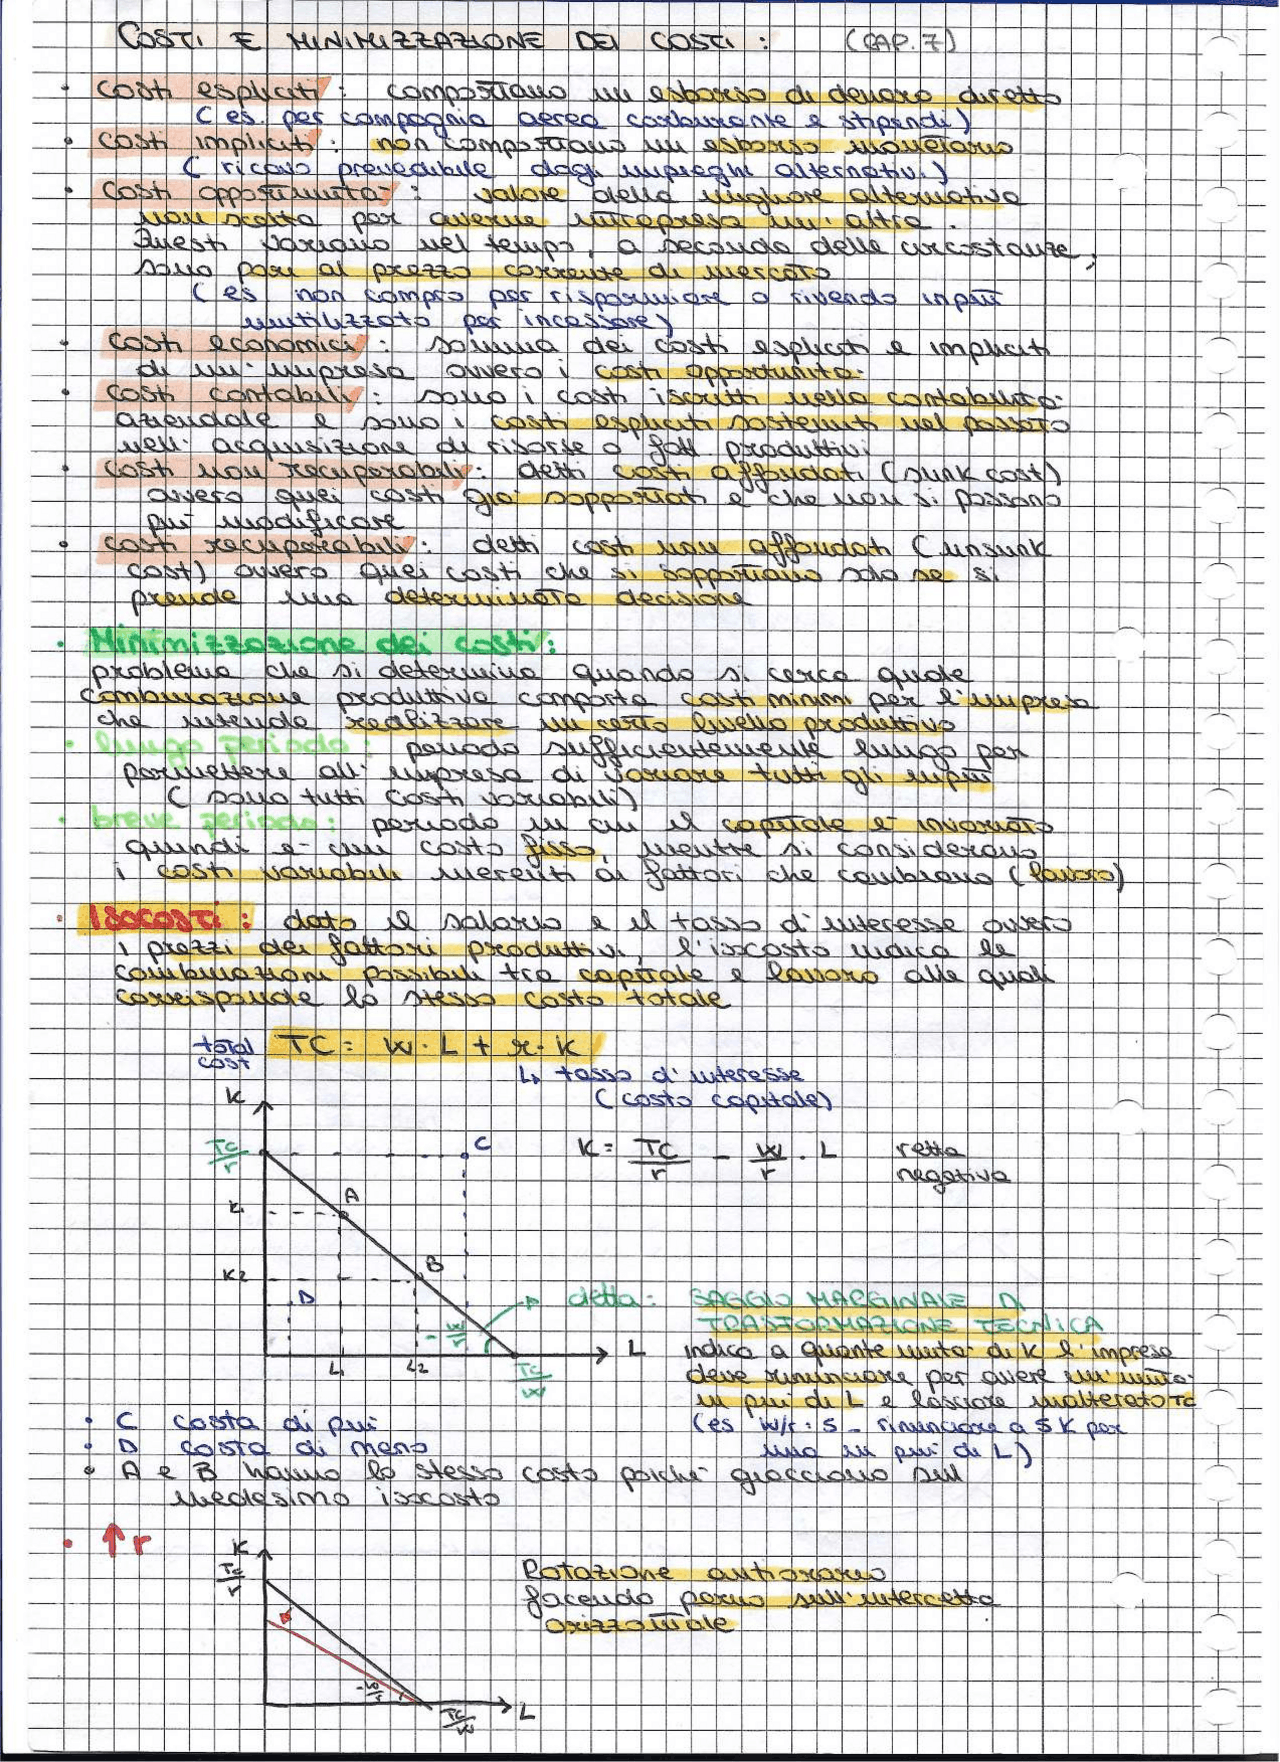 COSTI E MINIMIZZAZIONE DEI COSTI : (CAP. 7)
• costi espliciti : comportano un esborso di denaro diretto
( es. per compagnia aerea carburante e stipendi )
costi impliciti : non comportano un esborso monetario
( ricavo prevedibile dagli impieghi alternativi )
• costi opportunità : valore della migliore alternativa
non scelta per averne intrapresa un' altra .
Questi variano nel tempo, a seconda delle circostanze ;
sono pari al prezzo corrente di mercato
( es non compro per risparmiare o rivendo input
inutilizzato per incassare )
• costi economici : somma dei costi espliciti e impliciti
di un' impresa ovvero i costi opportunità
• costi contabili : sono i costi iscritti nella contabilità
aziendale e sono i costi espliciti sostenuti nel passato
nell' acquisizione di risorse o fatt. produttivi
• costi non recuperabili : detti costi affondati (sunk cost)
ovvero quei costi già sopportati e che non si possono
più modificare
• costi recuperabili : detti costi non affondati (unsunk
cost) ovvero quei costi che si sopportano solo se si
prende una determinata decisione
• Minimizzazione dei costi :
problema che si determina quando si cerca quale
combinazione produttiva comporta costi minimi per l'impresa
che intende realizzare un certo livello produttivo
• lungo periodo : periodo sufficientemente lungo per
permettere all' impresa di variare tutti gli input
( sono tutti costi variabili )
• breve periodo : periodo in cui il capitale è invariato
quindi è un costo fisso, mentre si considerano
i costi variabili inerenti ai fattori che cambiano (lavoro)
• ISOCOSTI : dato il salario e il tasso d'interesse ovvero
i prezzi dei fattori produttivi, l'isocosto indica le
combinazioni possibili tra capitale e lavoro alle quali
corrisponde lo stesso costo totale
total cost TC = w · L + r · K
↳ tasso d'interesse
( costo capitale )
K
TC/r C K = TC/r - w/r · L retta
negativa
A
K1
B
K2
D detta : SAGGIO MARGINALE DI
TRASFORMAZIONE TECNICA
- w/r
L1 L2 TC/w L indica a quante unità di K l'impresa
deve rinunciare per avere un'unità
in più di L e lasciare inalterato TC
• C costa di più (es w/r = 5 → rinunciare a 5 K per
• D costa di meno una in più di L )
• A e B hanno lo stesso costo poiché giacciono sul
medesimo isocosto
• ↑ r
K
TC/r Rotazione antioraria
facendo perno sull'intercetta
orizzontale
-w/r
TC/w L